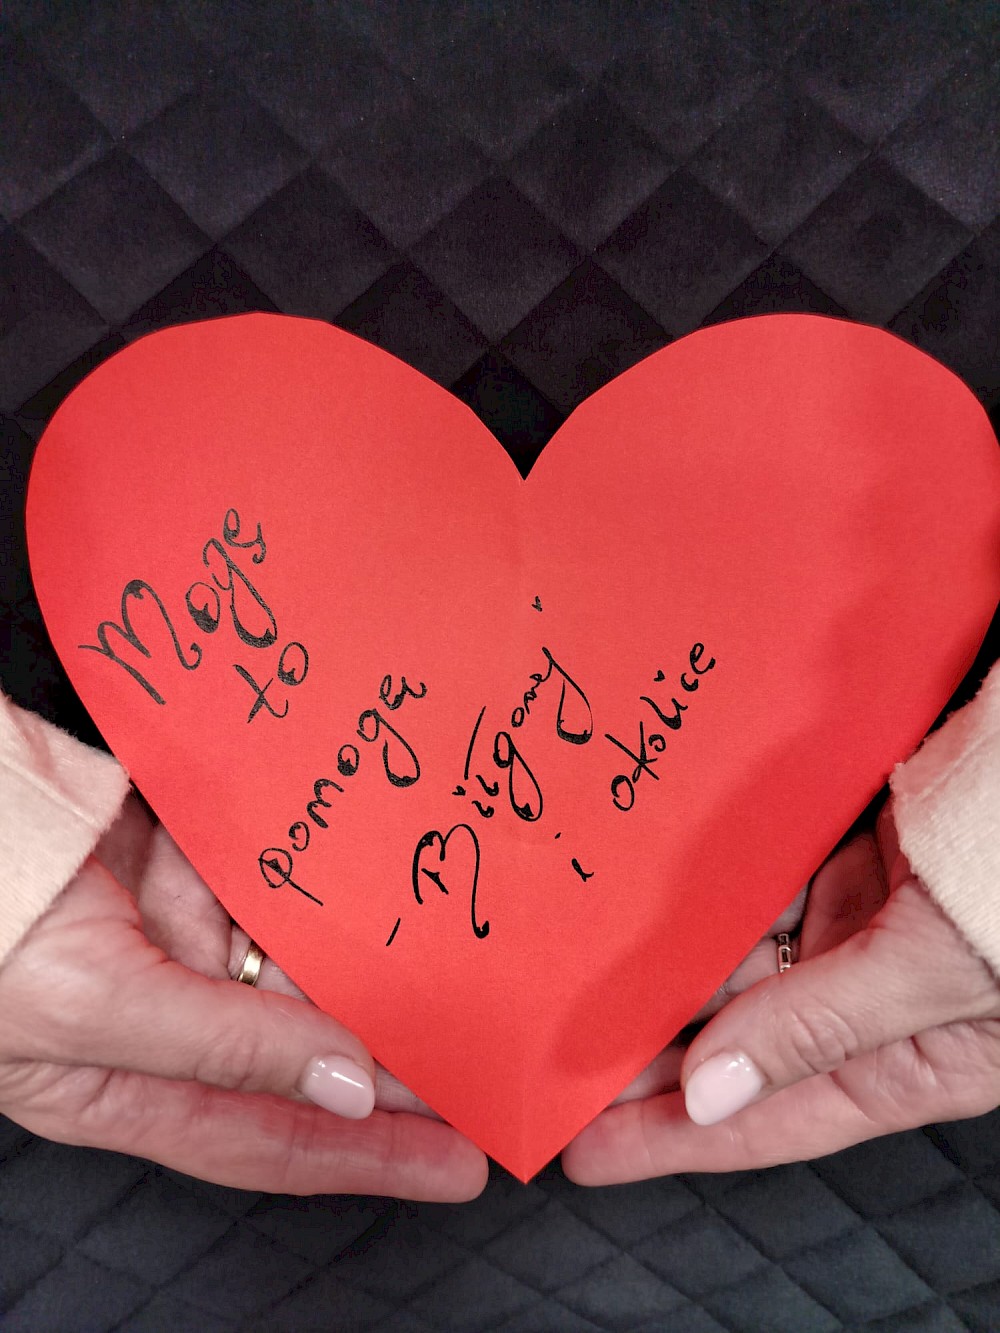 Mogę
to
pomogę
- Biłgoraj
i okolice